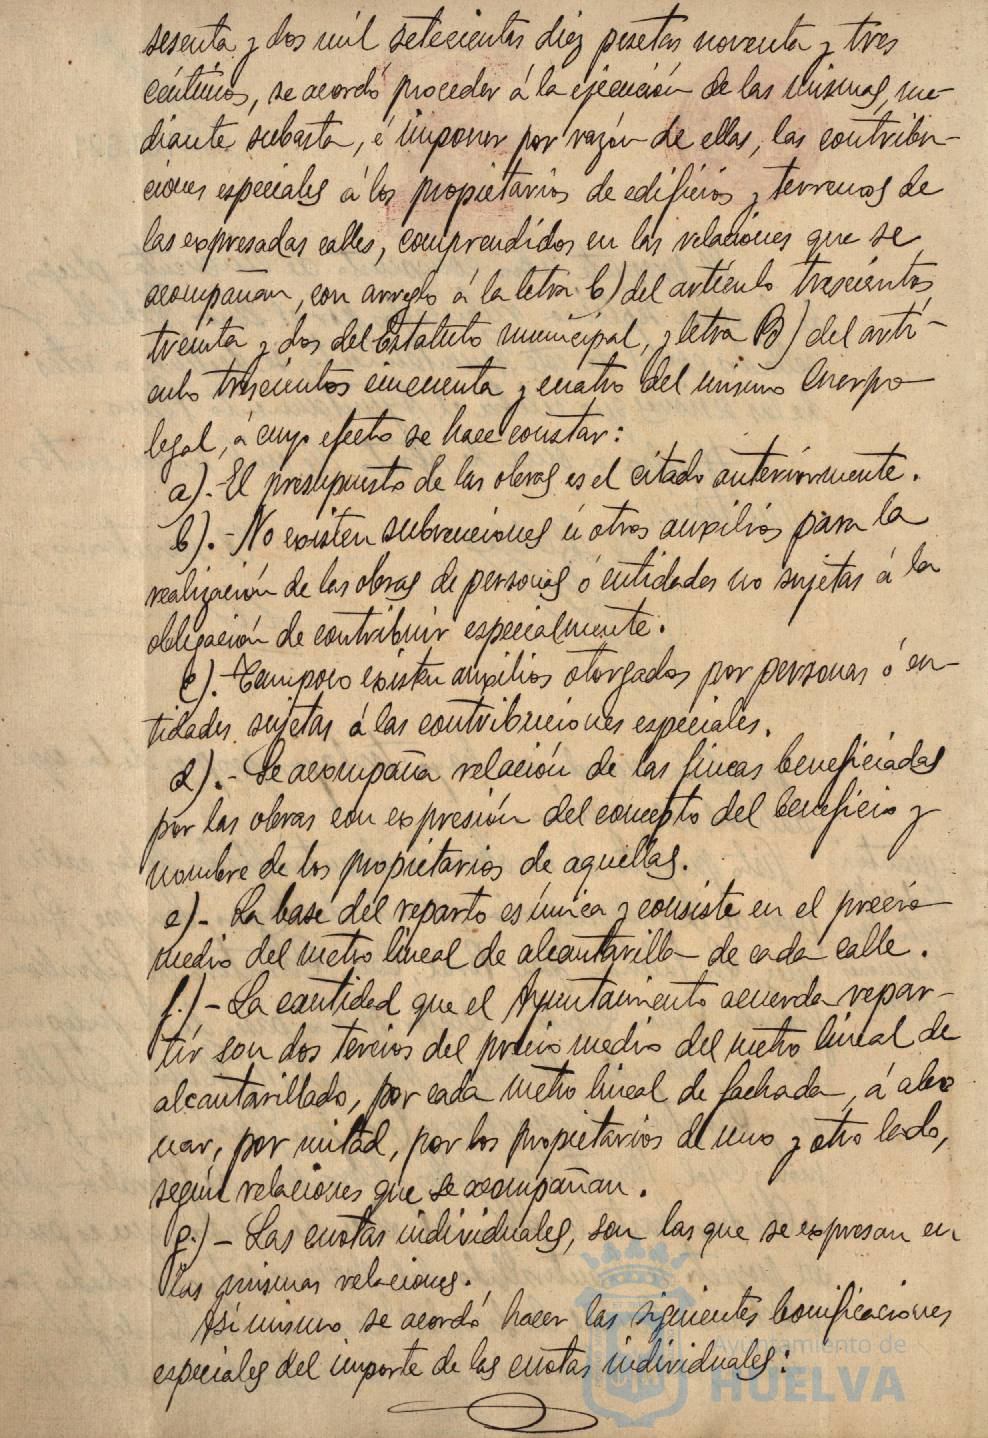 sesenta y dos mil setecientas diez pesetas noventa y tres
céntimos, se acordó proceder á la ejecución de las mismas, me-
diante subasta, é imponer por razón de ellas, las contribu-
ciones especiales á los propietarios de edificios y terrenos de
las expresadas calles, comprendidos en las relaciones que se
acompañan, con arreglo á la letra b) del artículo trescientos
treinta y dos del Estatuto municipal, y letra B) del artí-
culo trescientos cincuenta y cuatro del mismo Cuerpo
legal, á cuyo efecto se hace constar:
a).- El presupuesto de las obras es el citado anteriormente.
b).- No existen subvenciones ú otros auxilios para la
realización de las obras de personas ó entidades no sujetas á la
obligación de contribuir especialmente.
c).- Tampoco existen auxilios otorgados por personas ó en-
tidades sujetas á las contribuciones especiales.
d).- Se acompaña relación de las fincas beneficiadas
por las obras con expresión del concepto del beneficio y
nombre de los propietarios de aquellas.
e)- La base del reparto es única y consiste en el precio
medio del metro lineal de alcantarilla de cada calle.
f.)- La cantidad que el Ayuntamiento acuerda repar-
tir son dos tercios del precio medio del metro lineal de
alcantarillado, por cada metro lineal de fachada, á abo
nar, por mitad, por los propietarios de uno y otro lado,
según relaciones que se acompañan.
g.)- Las cuotas individuales, son las que se expresan en
las mismas relaciones.
Asimismo se acordó hacer las siguientes bonificaciones
especiales del importe de las cuotas individuales:
Ayuntamiento de
HUELVA